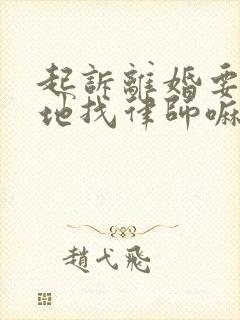 起訴離婚要
地找律師嘛
趙弋飛